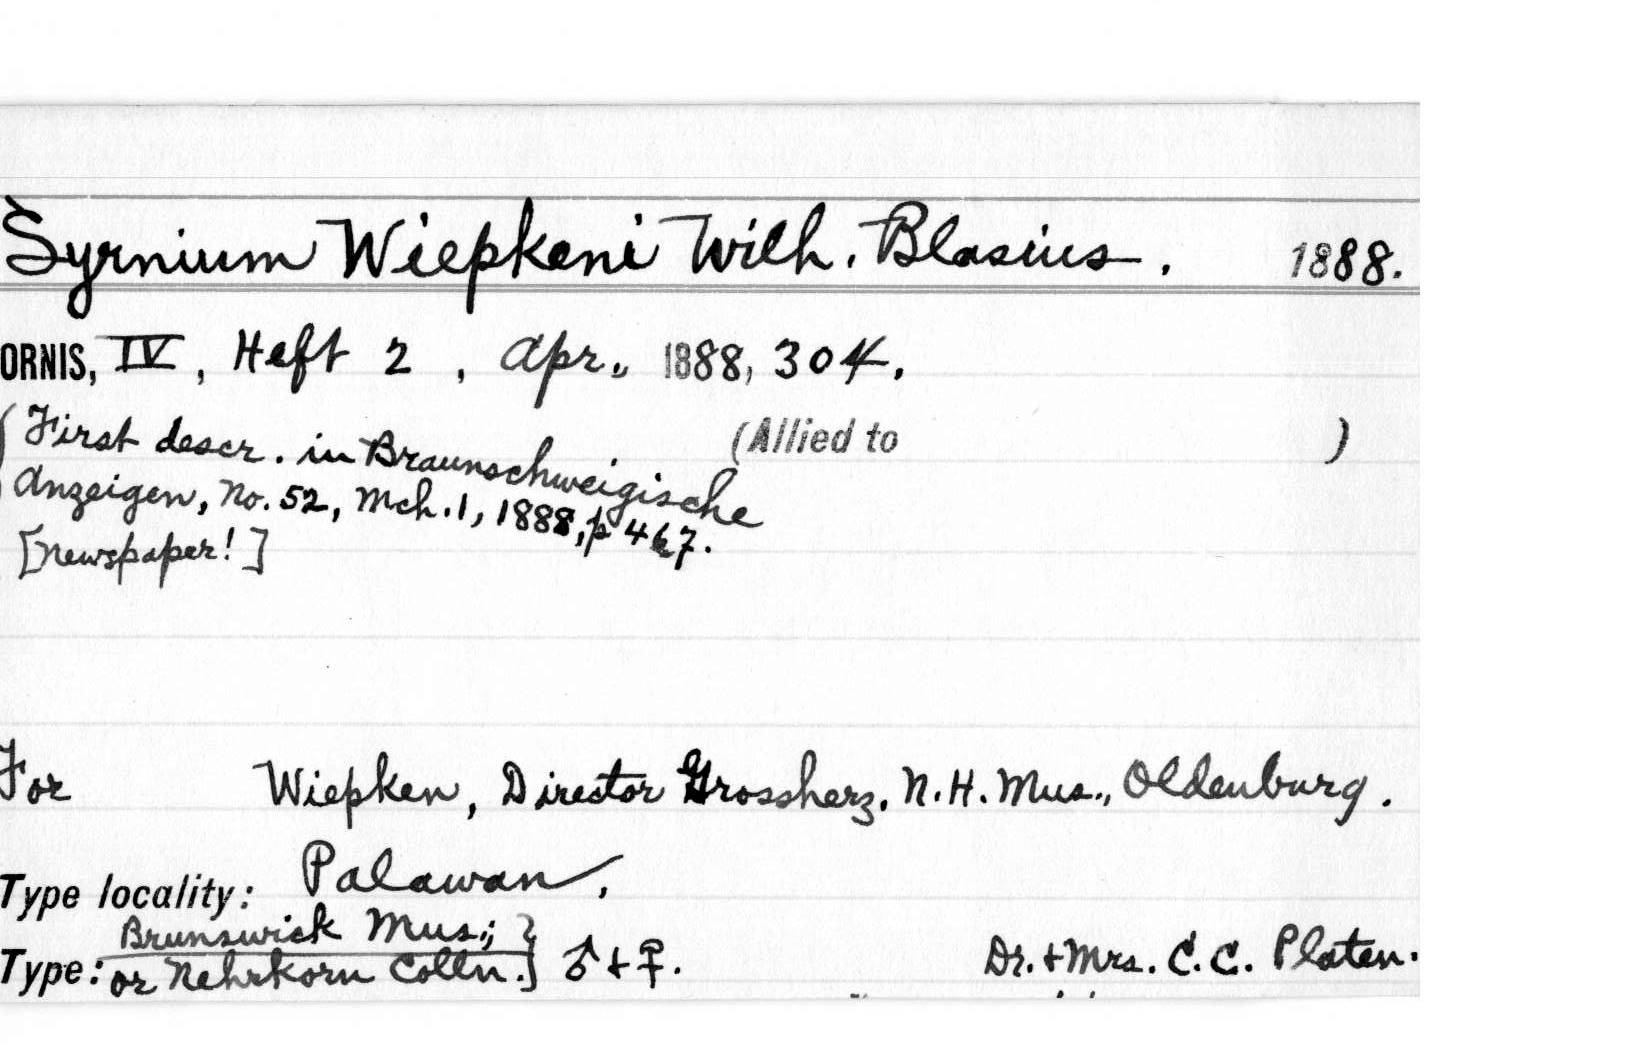 Syrnium Wiepkeni Wilh. Blasius. 1888.
ORNIS, IV, Heft 2, Apr., 1888, 304.
(Allied to )
(First descr. in Braunschweigische
Anzeigen, No. 52, Mch. 1, 1888, p 467.
[Newspaper!]
For Wiepken, Director Grossherz. N. H. Mus., Oldenburg.
Type locality: Palawan.
Brunswick Mus.; }
Type: or Nehrkorn Colln. } ♂ + ♀. Dr. + Mrs. C. C. Platen.